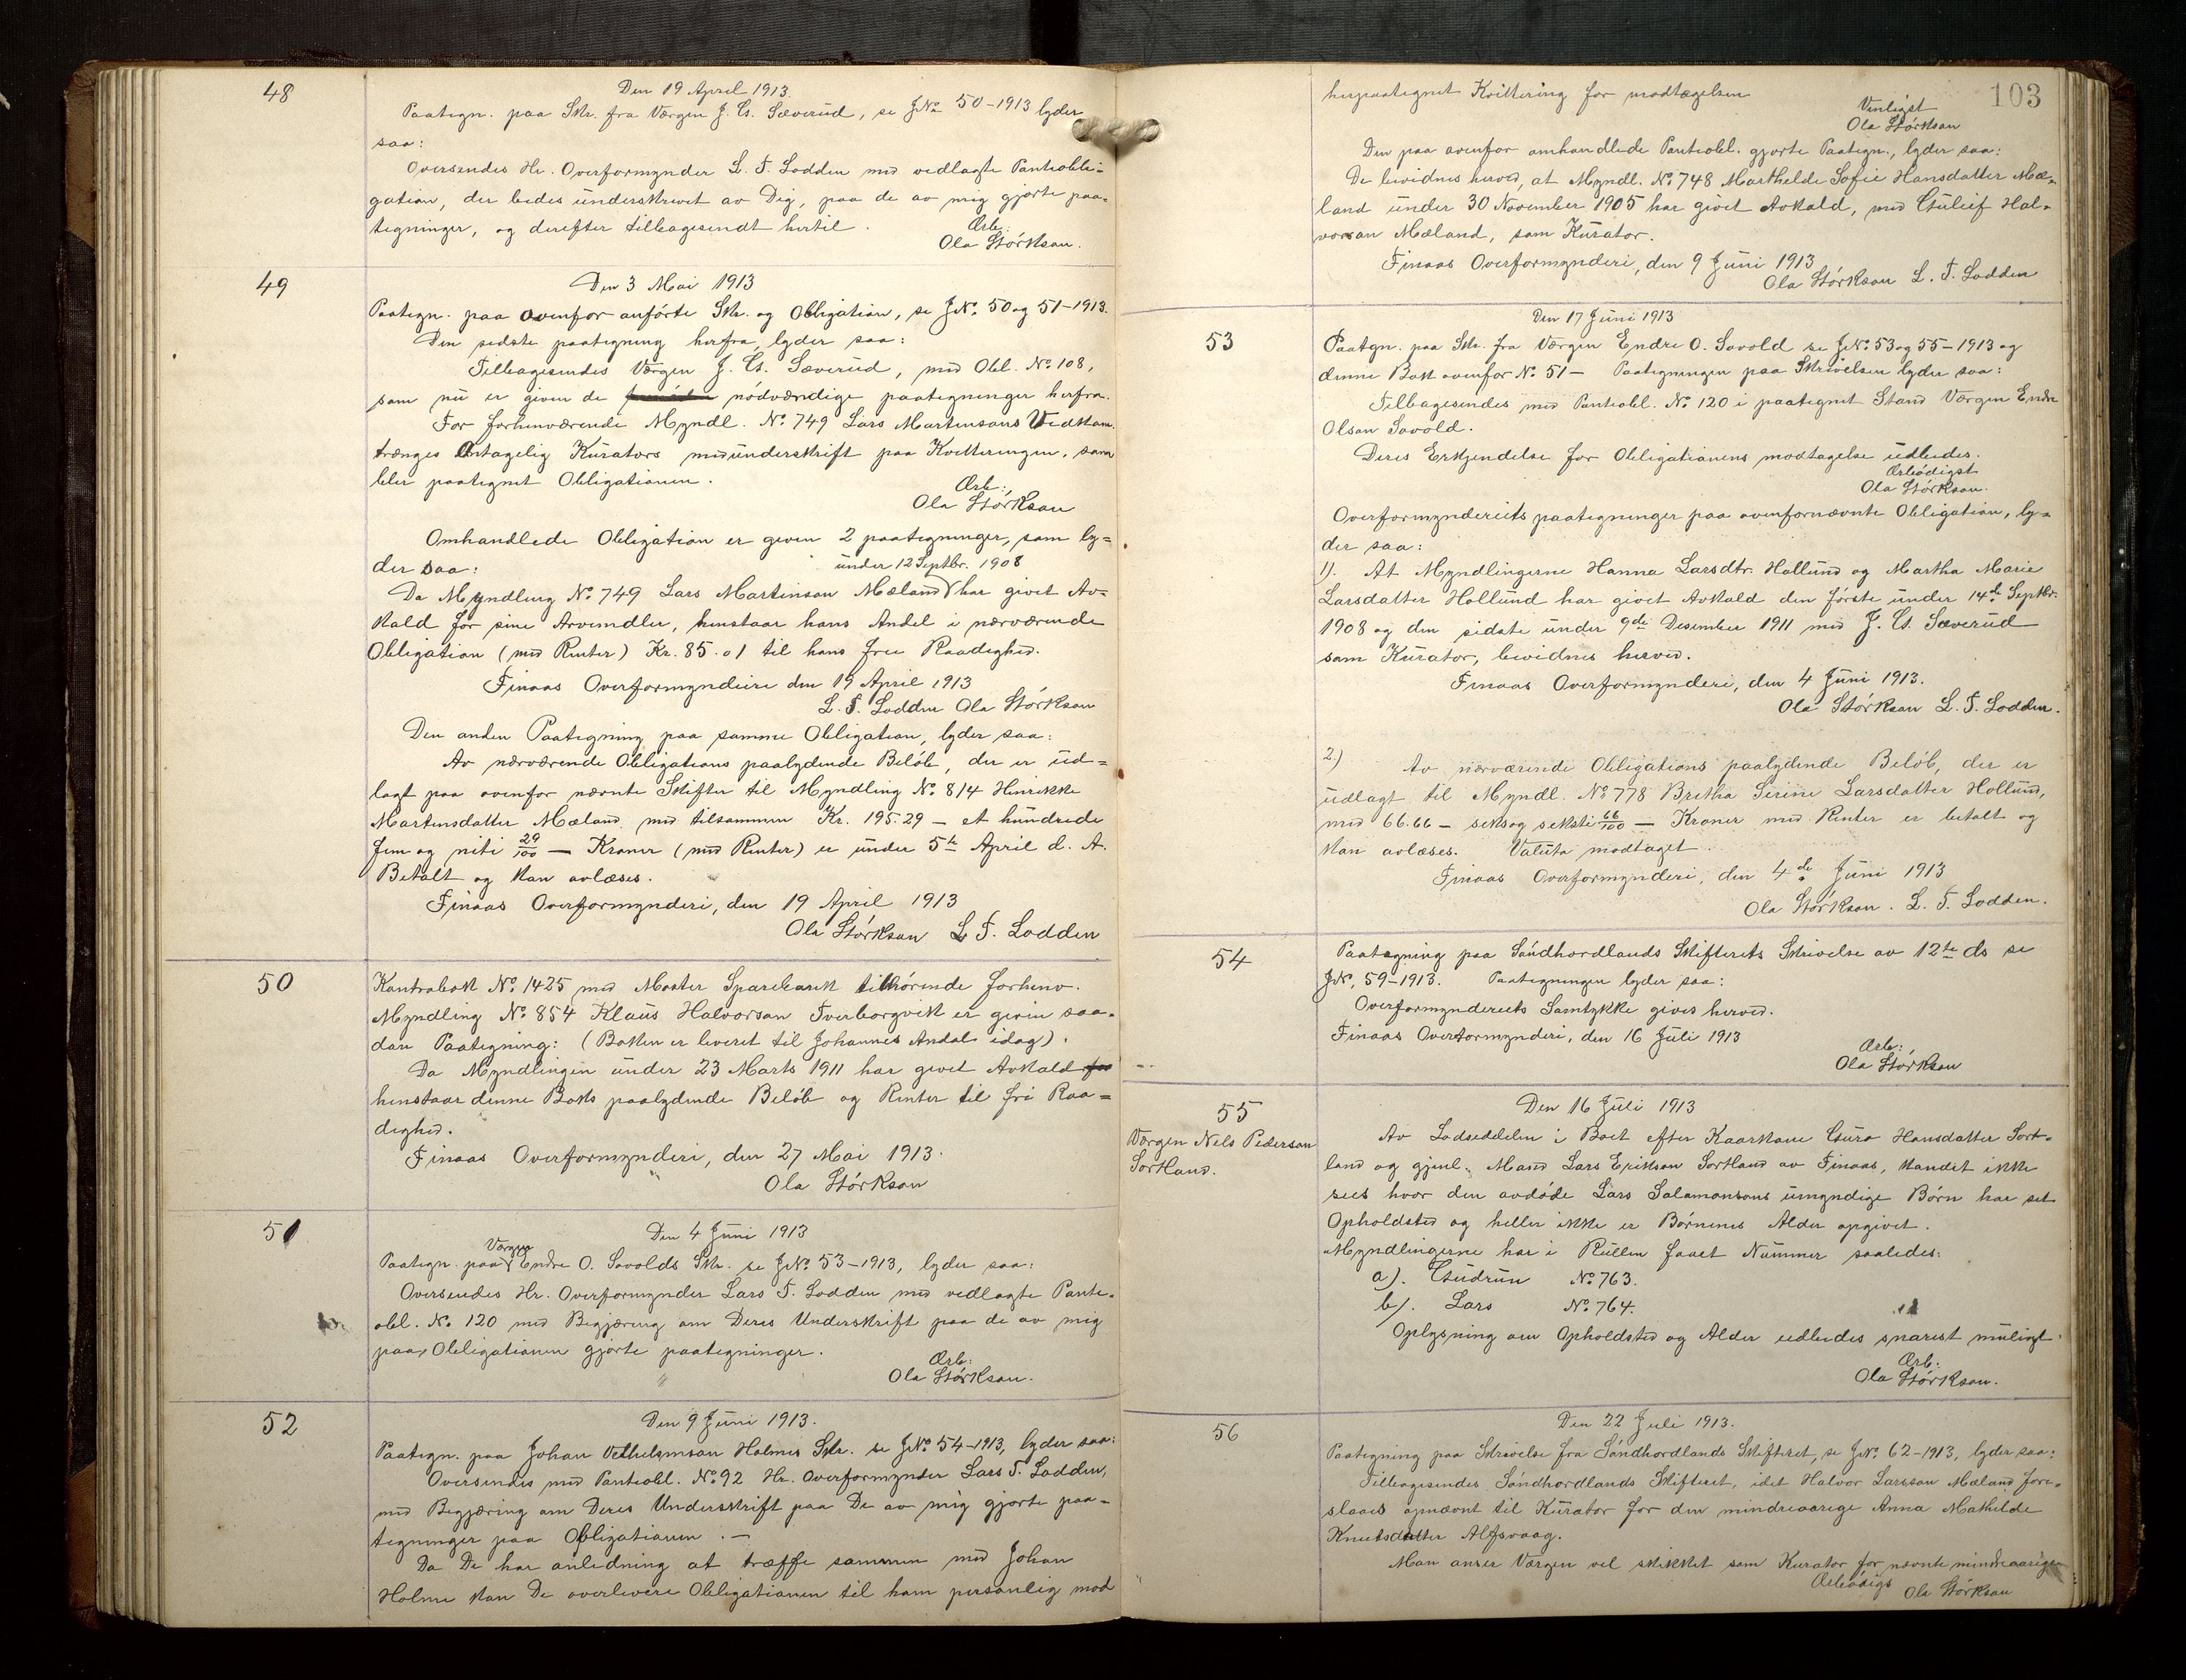 48
Den 19 April 1913.
Paategn. paa Skr. fra Værgen J. G. Sæverud, se JNo 50-1913 lyder
saa:
Oversendes Hr. Overformynder L. T. Lodden med vedlagte Panteobli=
gation, der bedes underskrevet av Dig, paa de av mig gjorte paa=
tegninger, og derefter tilbagesendt hertil.
Ærb:
Ola Størkson.
49
Den 3 Mai 1913
Paategn. paa ovenfor anførte Skr. og Obligation, se JNo. 50 og 51-1913.
Den sidste paategning herfra, lyder saa:
Tilbagesendes Værgen J. G. Sæverud, med Obl. No. 108,
som nu er given de nødværdige paategninger herfra.
For forhenværende Myndl. No. 749 Lars Martinsons Vedkom.
trænges Antagelig Kurators medunderskrift paa Kvitteringen, som
blev paategnet Obligationen.
Ærb:,
Ola Størkson
Omhandlede Obligation er given 2 paategninger, som ly=
der saa:
under 12 Septbr. 1908
Da Myndling No. 749 Lars Martinson Mæland har givet Av=
kald for sine Arvemidler, henstaar hans Andel i nærværende
Obligation (med Renter) Kr. 85.01 til hans frie Raadighed.
Finaas Overformynderi den 19 April 1913
L. T. Lodden Ola Størkson
Den anden Paategning paa samme Obligation, lyder saa:
Av nærværende Obligations paalydende Beløb, der er ud=
lagt paa ovenfor nævnte Skifter til Myndling No. 814 Henrikke
Martinsdatter Mæland med tilsammen Kr. 195.29 — et hundrede
fem og niti 29/100 — Kroner (med Renter) er under 5te April d. A.
Betalt og kan avlæses.
Finaas Overformynderi, den 19 April 1913
Ola Størkson L. T. Lodden
50
Kontrabok No. 1425 med Moster Sparebank tilhørende forhenv.
Myndling No. 854 Klaus Halvorson Tverborgvik er given saa=
dan Paategning: (Boken er leveret til Johannes Andal idag).
Da Myndlingen under 23 Marts 1911 har givet Avkald for
henstaar denne Boks paalydende Beløb og Renter til fri Raa=
dighed.
Finaas Overformynderi, den 27 Mai 1913.
Ola Størkson
51
Den 4 Juni 1913
Værgen
Paategn. paa Endre O. Sovolds Skr. se JNo. 53-1913, lyder saa:
Oversendes Hr. Overformynder Lars T. Lodden med vedlagte Pante=
obl. No. 120 med Begjæring om Deres Underskrift paa de av mig
paa Obligationen gjorte paategninger.
Ærb:
Ola Størkson.
52
Den 9 Juni 1913.
Paategn. paa Johan Vilhelmson Holmes Skr. se JNo. 54-1913, lyder saa:
Oversendes med Panteobl. No. 92 Hr. Overformynder Lars T. Lodden,
med Begjæring om Deres Underskrift paa De av mig gjorte paa=
tegninger paa Obligationen. —
Da De har anledning at træffe sammen med Johan
Holme kan De overlevere Obligationen til ham personlig mod
103
herpaategnet Kvittering for modtagelsen
Venligst
Ola Størkson
Den paa ovenfor omhandlede Panteobl. gjorte Paategn., lyder saa:
De bevidnes herved, at Myndl. No. 748 Marthilde Sofie Hansdatter Mæ=
land under 30 November 1905 har givet Avkald, med Guleif Hal=
vorson Mæland, som Kurator.
Finaas Overformynderi, den 9 Juni 1913
Ola Størkson L. T. Lodden
53
Den 17 Juni 1913
Paategn. paa Skr. fra Værgen Endre O. Sovold se JNo. 53 og 55-1913 og
denne Bok ovenfor No. 51 — Paategningen paa Skrivelsen lyder saa:
Tilbagesendes med Panteobl. No. 120 i paategnet Stand Værgen Endre
Olson Sovold.
Deres Erkjendelse for Obligationens modtagelse udbedes.
Ærbødigst
Ola Størkson.
Overformynderiets paategninger paa ovenfornævnte Obligation, ly=
der saa:
1). At Myndlingerne Hanna Larsdtr. Hollund og Martha Marie
Larsdatter Hollund har givet Avkald den første under 14de Septbr.
1908 og den sidste under 9de Desember 1911 med J. G. Sæverud
som Kurator, bevidnes herved.
Finaas Overformynderi, den 4 Juni 1913.
Ola Størkson L. T. Lodden.
2)
Av nærværende Obligations paalydende Beløb, der er
udlagt til Myndl. No. 778 Bretha Serine Larsdatter Hollund,
med 66.66 — seksog seksti 66/100 — Kroner med Renter er betalt og
kan avlæses. Valuta modtaget.
Finaas Overformynderi, den 4de Juni 1913
Ola Størkson. L. T. Lodden.
54
Paategning paa Søndhordlands Skifterets Skrivelse av 12te ds se
JNo. 59-1913. Paategningen lyder saa:
Overformynderiets Samtykke gives herved.
Finaas Overformynderi, den 16 Juli 1913
Ærb:,
Ola Størkson
55
Værgen Nels Pederson
Sortland.
Den 16 Juli 1913
Av Lodseddelen i Boet efter Kaarkone Guro Hansdatter Sort=
land og gjenl. Mand Lars Erikson Sortland av Finaas, kandet ikke
sees hvor den avdøde Lars Salamonsons umyndige Børn har set
Opholdsted og heller ikke er Børnenes Alder opgivet.
Myndlingerne har i Rullen faaet Nummer saaledes:
a). Gudrun No. 763.
b). Lars No. 764.
Oplysning om Opholdsted og Alder udbedes snarest muligt.
Ærb:
Ola Størkson.
56
Den 22 Juli 1913.
Paategning paa Skrivelse fra Søndhordlands Skifteret, se JNo. 62-1913, lyder saa:
Tilbagesendes Søndhordlands Skifteret, idet Halvor Larsson Mæland fore=
slaaes opnævnt til Kurator for den mindreaarige Anna Mathilde
Knutsdatter Alfsvaag.
Man anser Værgen vel skikket som Kurator for nævnte mindreaarige
Ærbødigs
Ola Størkson